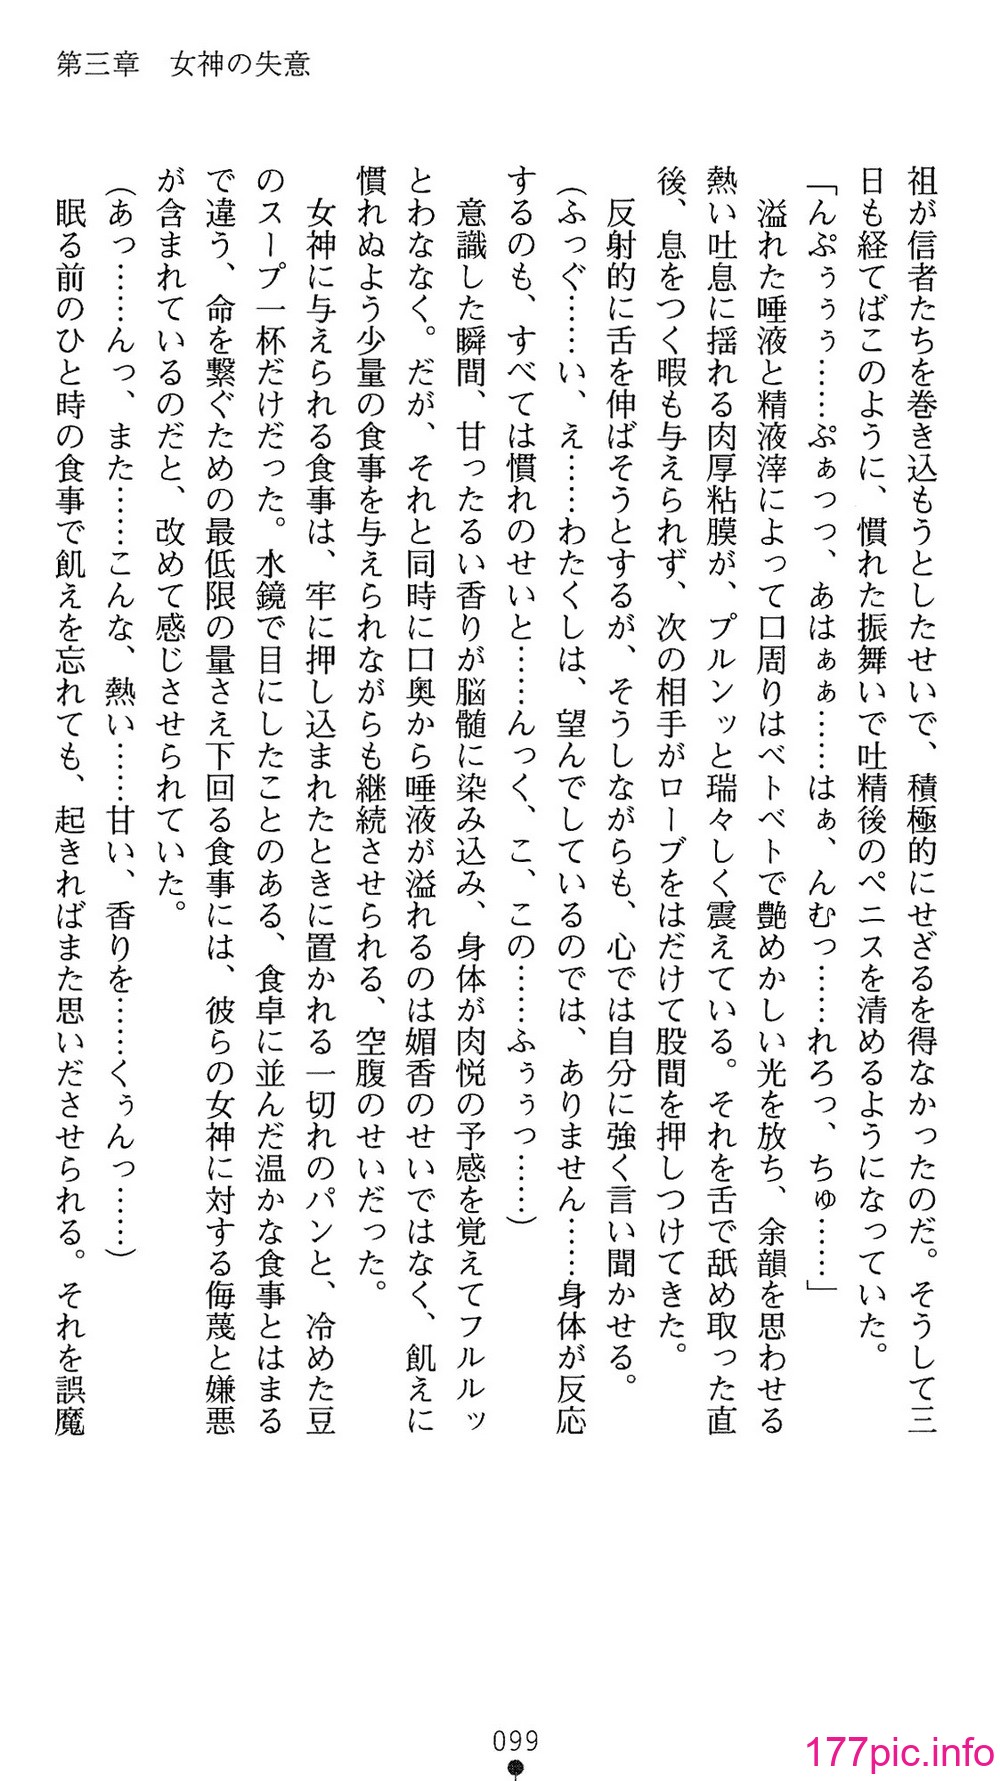 第三章　女神の失意
祖が信者たちを巻き込もうとしたせいで、積極的にせざるを得なかったのだ。そうして三
日も経てばこのように、慣れた振舞いで吐精後のペニスを清めるようになっていた。
「んぷぅぅぅ……ぷぁっっ、あはぁぁ……はぁ、んむっ……れろっ、ちゅ……」
　溢れた唾液と精液滓によって口周りはベトベトで艶めかしい光を放ち、余韻を思わせる
熱い吐息に揺れる肉厚粘膜が、プルンッと瑞々しく震えている。それを舌で舐め取った直
後、息をつく暇も与えられず、次の相手がローブをはだけて股間を押しつけてきた。
　反射的に舌を伸ばそうとするが、そうしながらも、心では自分に強く言い聞かせる。
（ふっぐ……い、え……わたくしは、望んでしているのでは、ありません……身体が反応
するのも、すべては慣れのせいと……んっく、こ、この……ふぅぅっ……）
　意識した瞬間、甘ったるい香りが脳髄に染み込み、身体が肉悦の予感を覚えてフルルッ
とわななく。だが、それと同時に口奥から唾液が溢れるのは媚香のせいではなく、飢えに
慣れぬよう少量の食事を与えられながらも継続させられる、空腹のせいだった。
　女神に与えられる食事は、牢に押し込まれたときに置かれる一切れのパンと、冷めた豆
のスープ一杯だけだった。水鏡で目にしたことのある、食卓に並んだ温かな食事とはまる
で違う、命を繋ぐための最低限の量さえ下回る食事には、彼らの女神に対する侮蔑と嫌悪
が含まれているのだと、改めて感じさせられていた。
（あっ……んっ、また……こんな、熱い……甘い、香りを……くぅんっ……）
　眠る前のひと時の食事で飢えを忘れても、起きればまた思いださせられる。それを誤魔
099
177pic.info